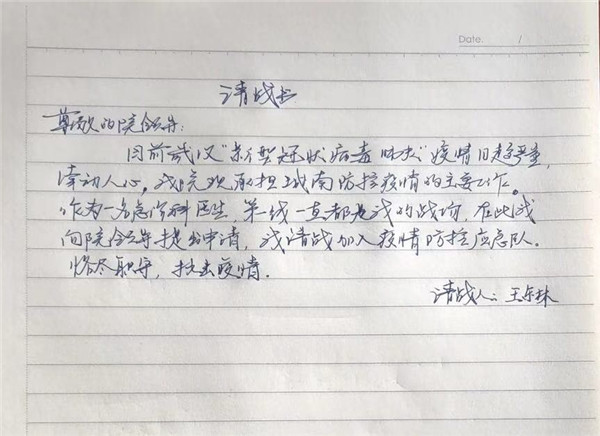 Date. /
请战书
尊敬的院领导:
目前武汉“新型冠状病毒肺炎”疫情日趋严重,
牵动人心。我院现承担城南防控疫情的主要工作。
作为一名急诊科医生,第一线一直都是我的战场,在此我
向院领导提出申请,我请战加入疫情防控应急队.
恪尽职守,抗击疫情.
请战人: 王乐林